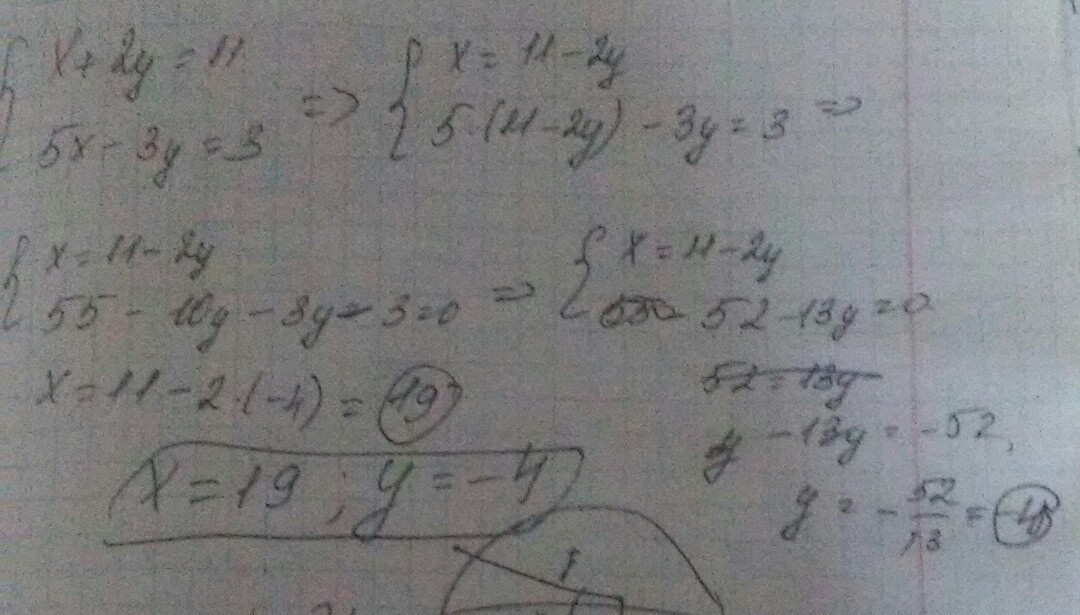 { x + 2y = 11
5x - 3y = 3 => { x = 11 - 2y
5·(11-2y) - 3y = 3 =>
{ x = 11 - 2y
55 - 10y - 3y - 3 = 0 => { x = 11 - 2y
52 - 13y = 0
x = 11 - 2·(-4) = 19
52 = 13y
- 13y = -52,
x = 19 ; y = -4
y = - 52/13 = -4